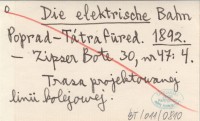 Die elektrische Bahn
Poprad-Tátrafüred. 1892.
- Zipser Bote 30, nr 47: 4.
Trasa projektowanej
linii kolejowej.
BT/011/0810